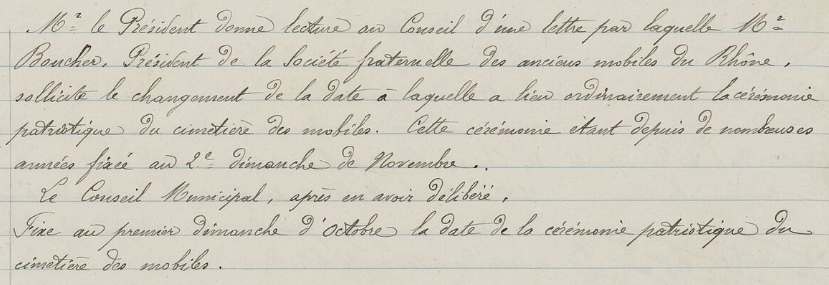 Mr le Président donne lecture au Conseil d'une lettre par laquelle Mr
Boucher, Président de la Société fraternelle des anciens mobiles du Rhône,
sollicite le changement de la date à laquelle a lieu ordinairement la cérémonie
patriotique du cimetière des mobiles. Cette cérémonie étant depuis de nombreuses
années fixé au 2e dimanche de Novembre..
Le Conseil Municipal, après en avoir délibéré,
Fixe au premier dimanche d'Octobre la date de la cérémonie patriotique du
cimetière des mobiles.